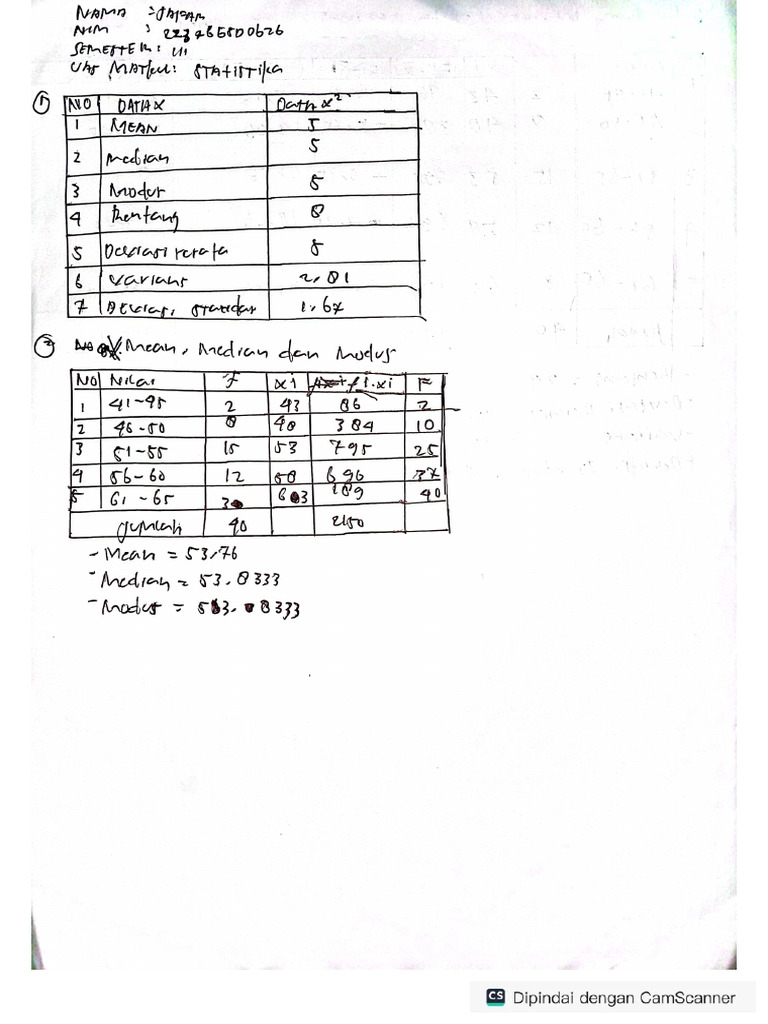 NAMA :
NIM :
SEMESTER : III
UAS MATKUL : STATISTIKA
① NO DATA X Data x²
1 MEAN 5
2 median 5
3 Modus 5
4 Rentang 8
5 Deviasi rerata
6 Varians 2,81
7 Deviasi standar 1.67
② Mean, Median dan Modus
NO Nilai F xi fi.xi F
1 41-45 2 43 86 2
2 46-50 8 48 384 10
3 51-55 15 53 795 25
4 56-60 12 58 696 37
5 61-65 3 63 189 40
Jumlah 40 2150
- Mean = 53,76
- Median = 53.8333
- Modus = 53.8333
CS Dipindai dengan CamScanner